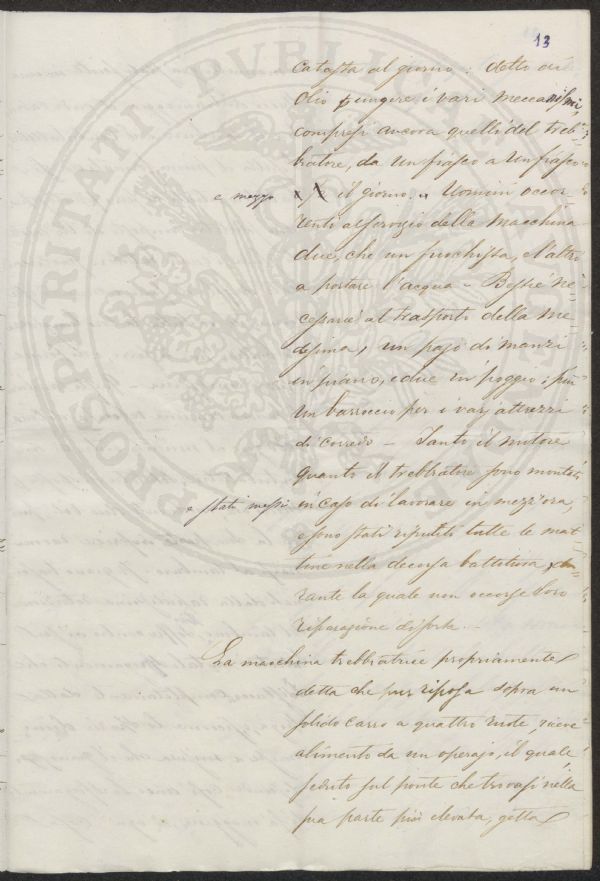 13
catasta al giorno: detto di
Olio p ungere i vari meccanismi,
compresi ancora quelli del treb-
biatore, da un fiasco a un fiasco
e mezzo il giorno. Uomini occor-
renti al servizio della macchina
due, che un fuochista, e l'altro
a portare l'acqua - Bestie ne-
cessarie al trasporto della me-
desima, un pajo di manzi
in piano, e due in poggio; più
un barroccio per i varj attrezzi
di corredo - Tanto il motore
quanto il trebbiatore sono montati
e stati messi in caso di lavorare in mezz'ora,
e sono stati ripuliti tutte le mat-
tine nella decorsa battitura, du-
rante la quale non occorse loro
riparazione di sorta. -
La macchina trebbiatrice propriamente
detta che pur riposa sopra un
solido carro a quattro ruote, riceve
alimento da un operajo, il quale,
seduto sul ponte che trovasi nella
sua parte più elevata, getta
PROSPERITATI PVBLICAE AVGENDAE